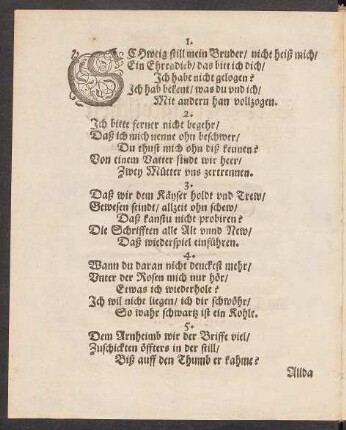 1.
SChweig still mein Bruder/ nicht heiß mich/
Ein Ehrendieb/ das bitt ich dich/
Ich habe nicht gelogen?
Ich hab bekent/ was du vnd ich/
Mit andern han vollzogen.
2.
Ich bitte ferner nicht begehr/
Daß ich mich nenne ohn beschwer/
Du thust mich ohn diß kennen?
Von einem Vatter sindt wir heer/
Zwey Mütter vns zertrennen.
3.
Daß wir dem Käyser holdt vnd Trew/
Gewesen seindt/ allzeit ohn schew/
Daß kanstu nicht probiren?
Die Schrifften alle Alt vnnd New/
Daß wiederspiel einführen.
4.
Wann du daran nicht denckest mehr/
Vnter der Rosen mich nur hör/
Etwas ich wiederhole?
Ich wil nicht liegen/ ich dir schwöhr/
So wahr schwartz ist ein Kohle.
5.
Dem Arnheimb wir der Briffe viel/
Zuschickten öffters in der still/
Biß auff den Thumb er kahme?
Allda